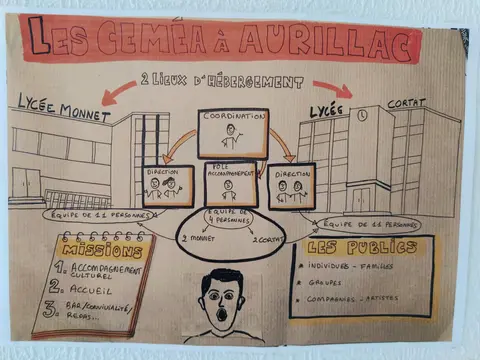 LES CEMEA À AURILLAC
2 LIEUX D'HÉBERGEMENT
LYCÉE MONNET
LYCÉE CORTAT
COORDINATION
DIRECTION
PÔLE ACCOMPAGNEMENT
DIRECTION
ÉQUIPE DE 11 PERSONNES
ÉQUIPE DE 4 PERSONNES
ÉQUIPE DE 11 PERSONNES
2 MONNET
2 CORTAT
MISSIONS
1. ACCOMPAGNEMENT
CULTUREL
2. ACCUEIL
3. BAR/CONVIVIALITÉ/
REPAS...
LES PUBLICS
* INDIVIDUES - FAMILLES
* GROUPES
* COMPAGNIES - ARTISTES